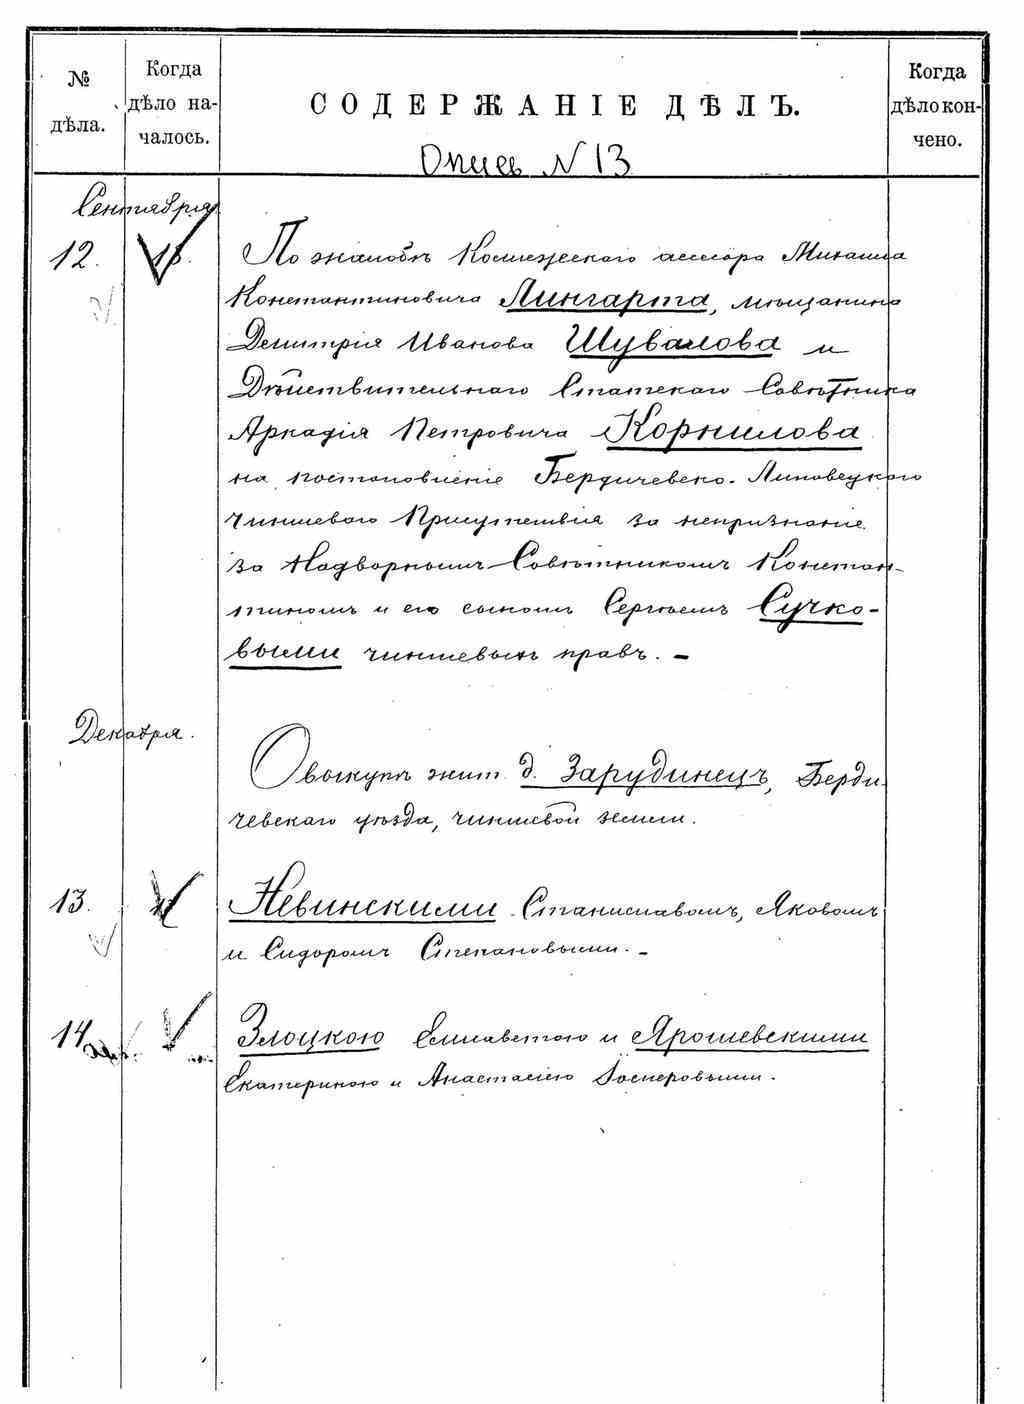 № дѣла.
Когда дѣло началось.
СОДЕРЖАНІЕ ДѢЛЪ.
Когда дѣло кончено.
Опись N 13
Сентября
12. 18. По жалобѣ Коллежскаго ассесора Михаила
Константиновича Лингарта, мѣщанина
Дмитрія Иванова Шувалова и
Дѣйствительнаго Статскаго Совѣтника
Аркадія Петровича Корнилова
на постановленіе Бердичевско-Липовецкого
Чиншеваго Присутствія за непризнаніе
за Надворнымъ Совѣтникомъ Констан-
тиномъ и его сыномъ Сергѣемъ Сучко-
выми чиншевыхъ правъ. –
Декабря.
О выкупѣ жит. д. Зарудинецъ, Берди
чевскаго уѣзда, чиншевой земли.
13. Невинскими Станиславомъ, Яковомъ
и Сидоромъ Степановыми. –
14 Злоцкою Елисаветою и Ярошевскими
Екатериною и Анастасіею Іосиеровыми.